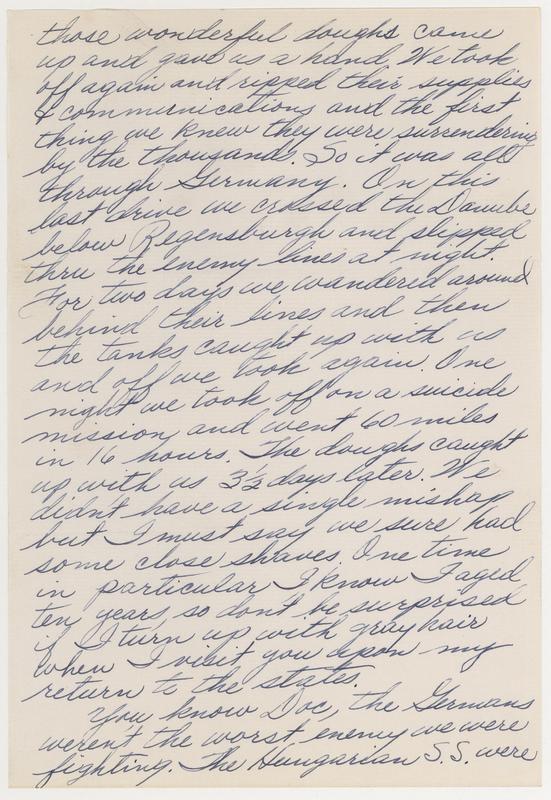 those wonderful doughs came
up and gave us a hand. We took
off again and ripped their supplies
& communications and the first
thing we knew they were surrendering
by the thousands. So it was all
through Germany. On this
last drive we crossed the Danube
below Regensburgh and slipped
thru the enemy lines at night.
For two days we wandered around
behind their lines and then
the tanks caught up with us
and off we took again. One
night we took off on a suicide
mission and went 60 miles
in 16 hours. The doughs caught
up with us 3½ days later. We
didn't have a single mishap
but I must say we sure had
some close shaves. One time
in particular I know I aged
ten years, so dont be surprised
if I turn up with gray hair
when I visit you upon my
return to the states.
You know Doc, the Germans
weren't the worst enemy we were
fighting. The Hungarian S.S. were